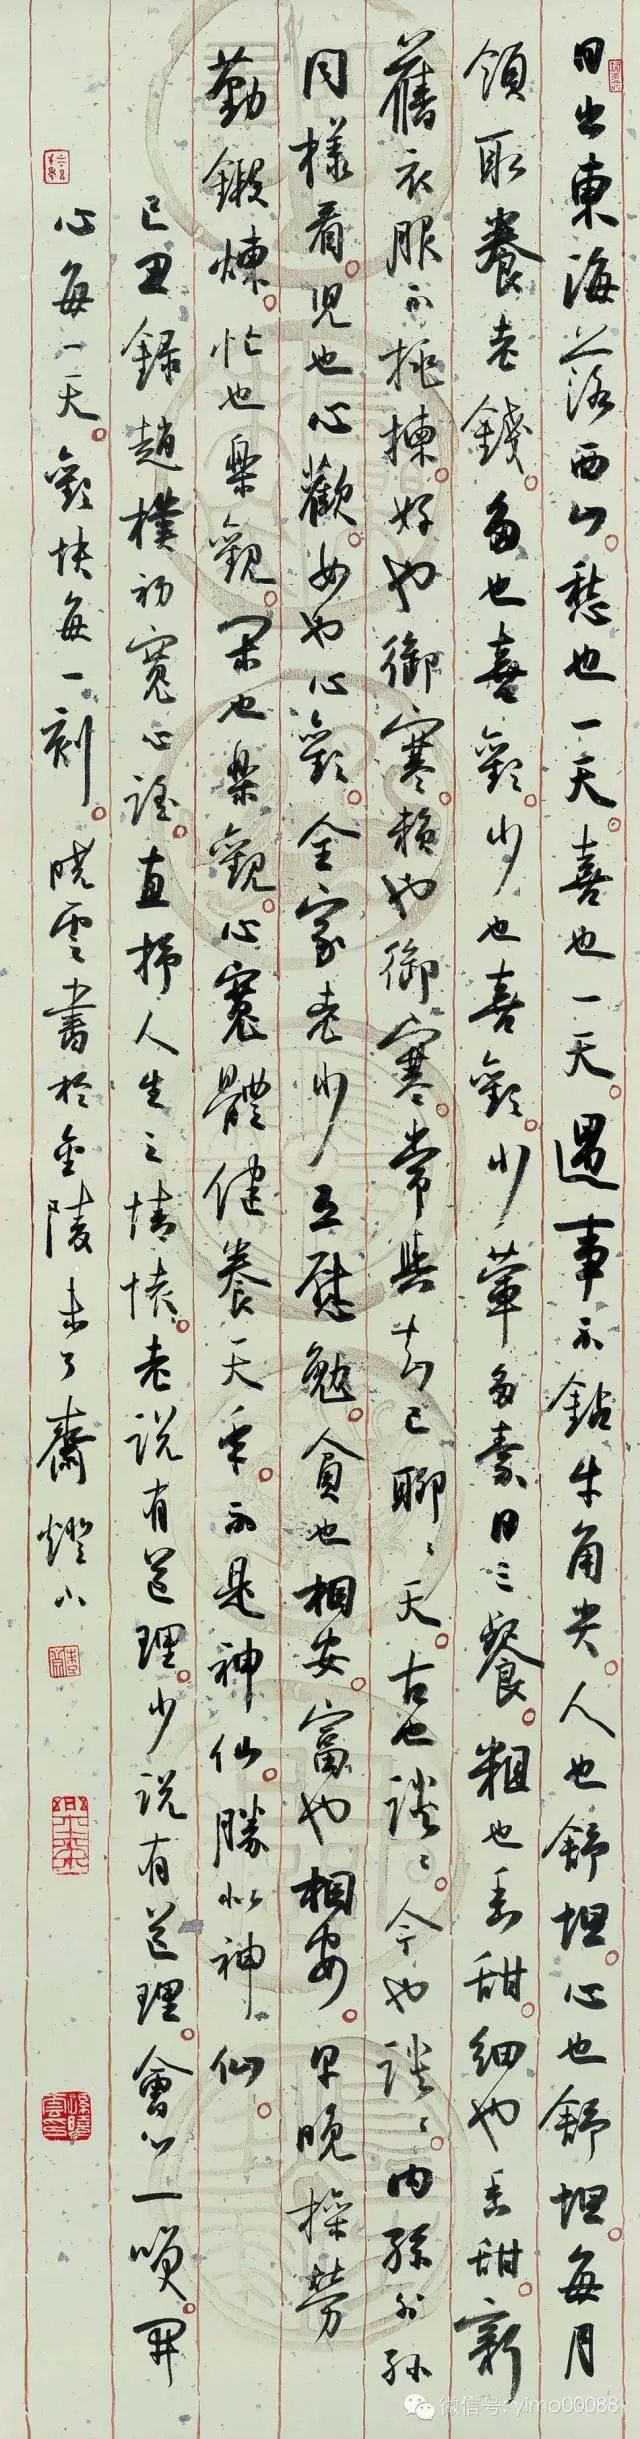 日出東海落西山愁也一天喜也一天遇事不鈷牛角尖人也舒坦心也舒坦每月
領取養老錢多也喜歡少也喜歡少葷多素日三餐粗也香甜細也香甜新
舊衣服不挑揀好也御寒賴也御寒常與知己聊〻天古也談〻今也談〻内孫外孫
同樣看児也心歡女也心歡全家老少互慰勉貧也相安富也相安早晚操勞
勤鍛煉忙也樂觀閑也樂觀心寬體健養天年不是神仙勝似神仙
己丑録趙樸初寬心謡直抒人生之情懐老説有道理少説有道理會心一笑開
心每一天歡快每一刻曉雲書於金陵未了齋燈下
微信号: yimo00088